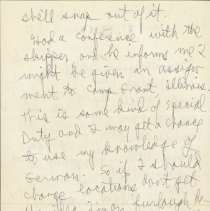 she'll snap out of it.
Had a conference with the
skipper and he informs me I
might be given an assign-
ment to Camp Grant Illinois
This is some kind of special
Duty and I may get a chance
to use my knowledge of
German. So if I should
change locations don't get